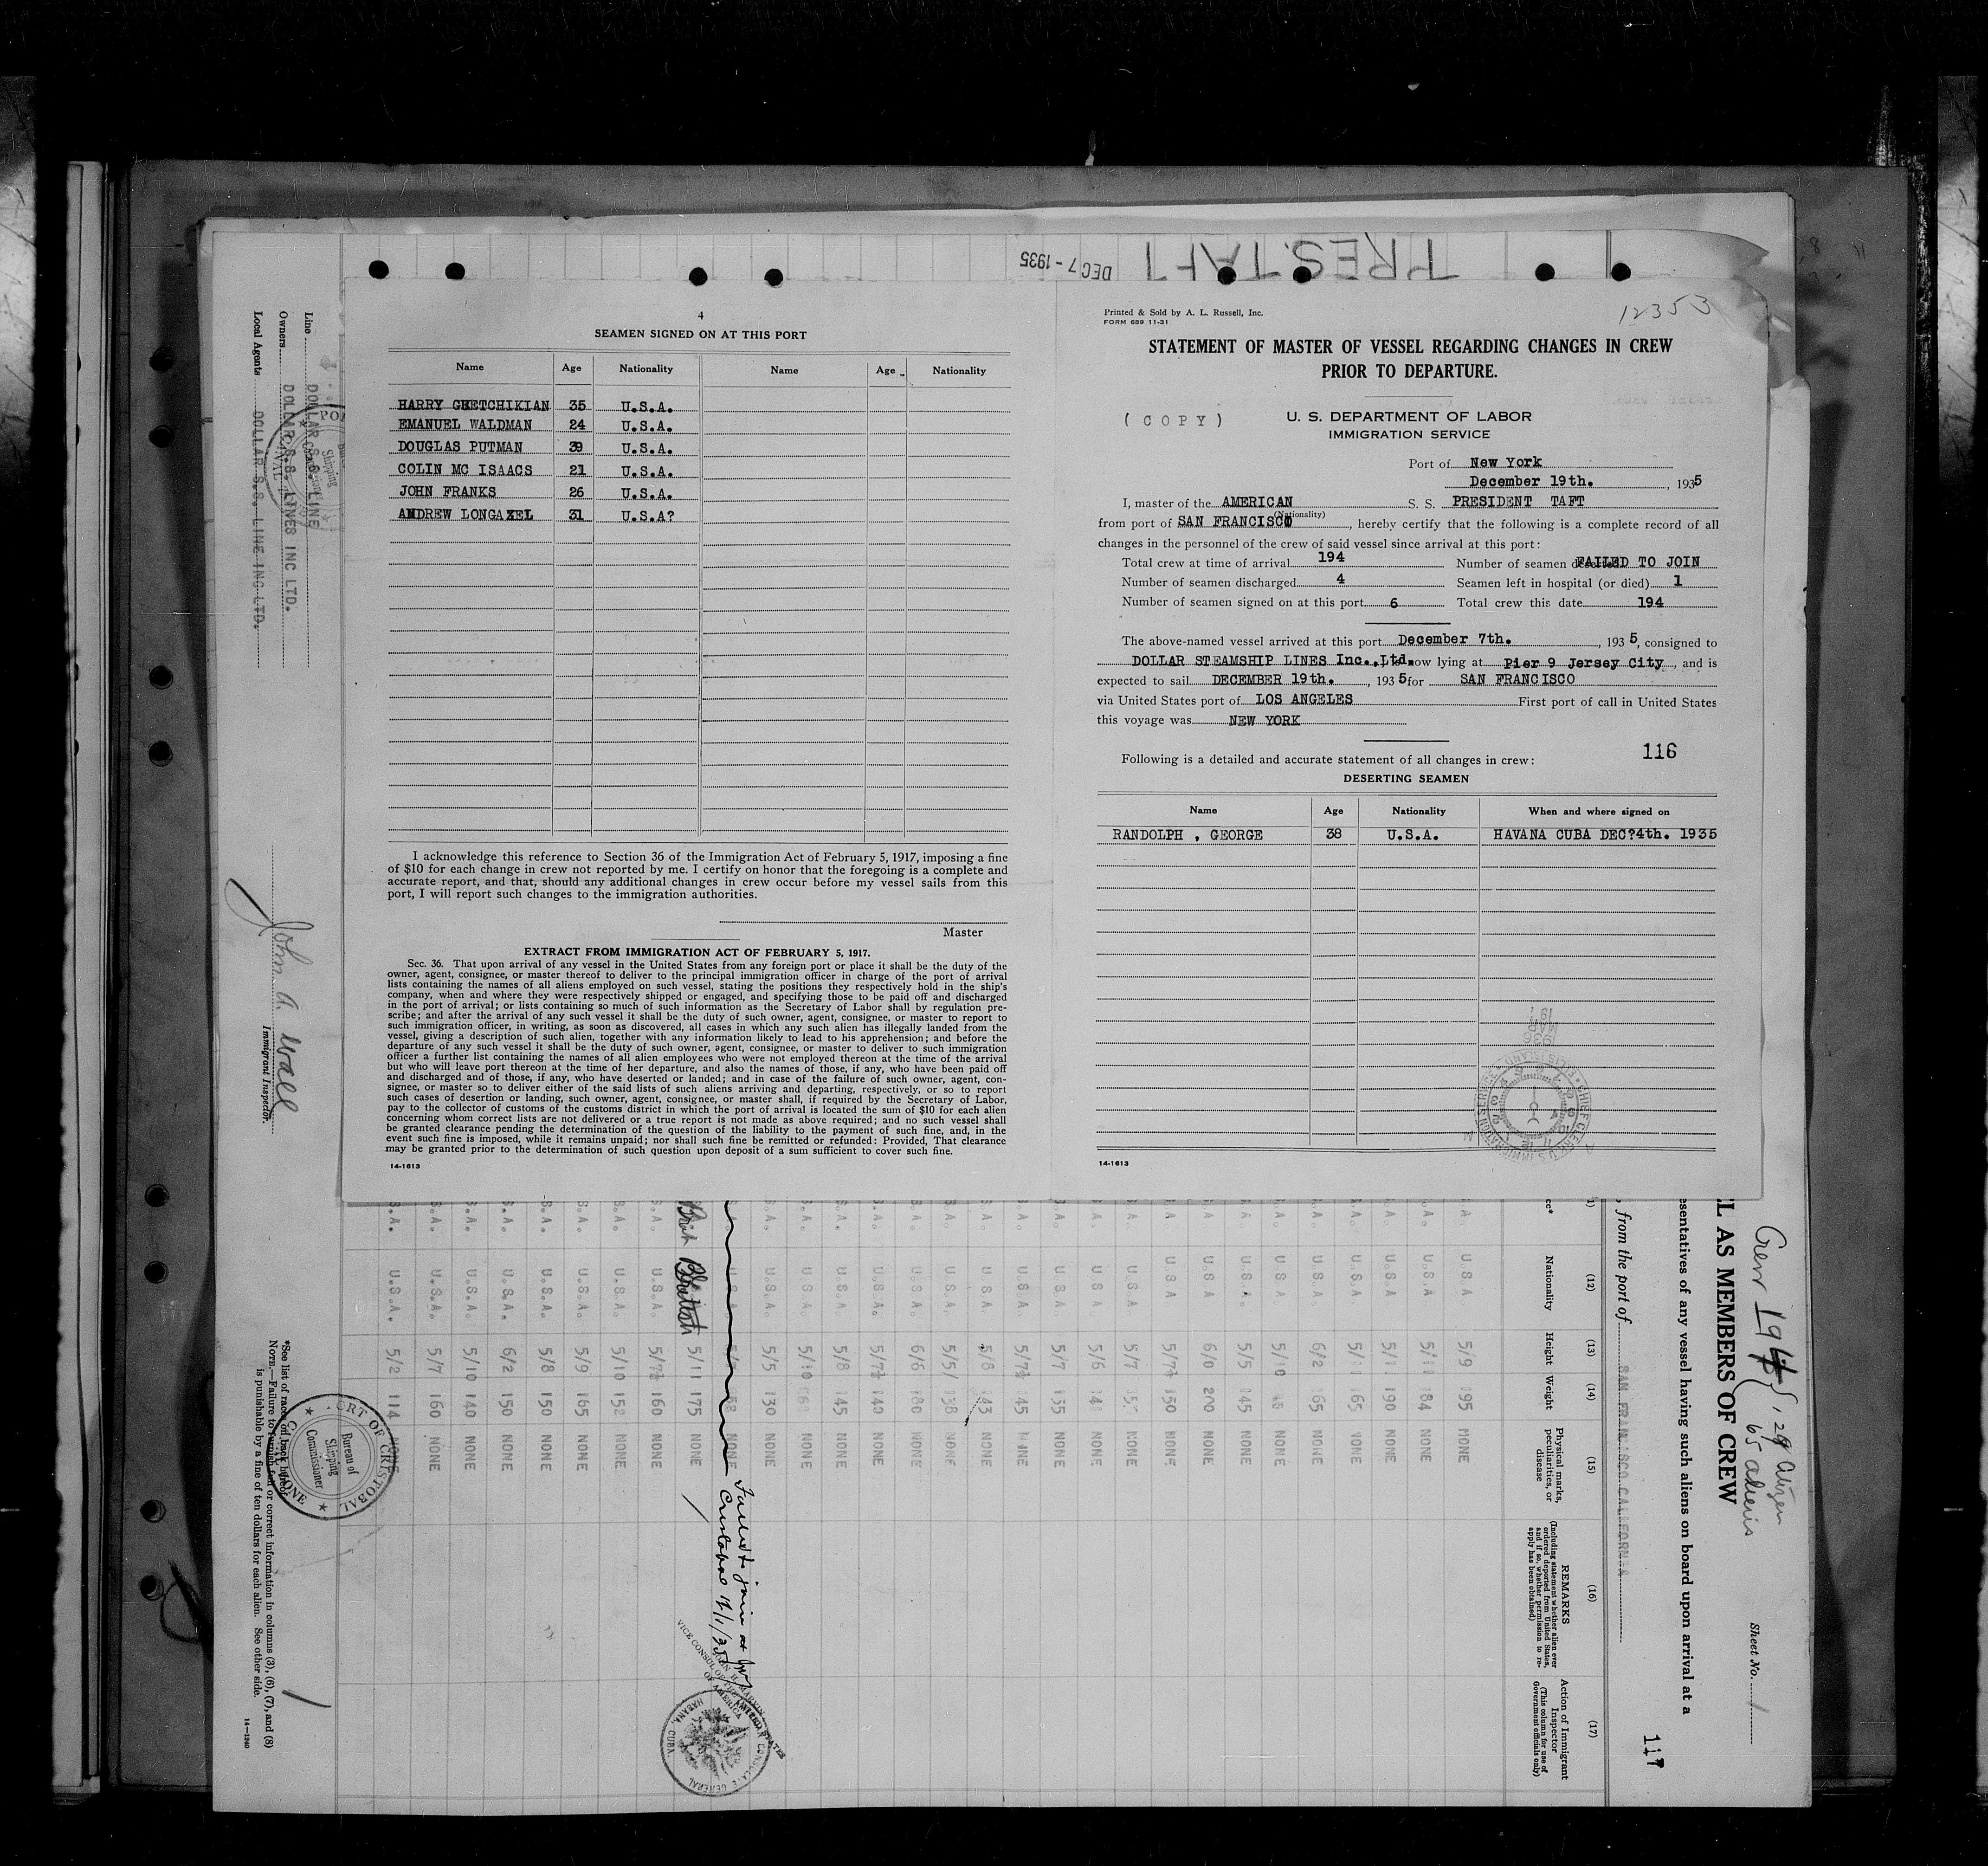 PRES. TAFT
DEC 7 - 1935
4
SEAMEN SIGNED ON AT THIS PORT
Name Age Nationality Name Age Nationality
HARRY GHETCHIKIAN 35 U.S.A.
EMANUEL WALDMAN 24 U.S.A.
DOUGLAS PUTMAN 39 U.S.A.
COLIN MC ISAACS 21 U.S.A.
JOHN FRANKS 26 U.S.A.
ANDREW LONGAZEL 31 U.S.A?
I acknowledge this reference to Section 36 of the Immigration Act of February 5, 1917, imposing a fine
of $10 for each change in crew not reported by me. I certify on honor that the foregoing is a complete and
accurate report, and that, should any additional changes in crew occur before my vessel sails from this
port, I will report such changes to the immigration authorities.
Master
EXTRACT FROM IMMIGRATION ACT OF FEBRUARY 5, 1917.
Sec. 36. That upon arrival of any vessel in the United States from any foreign port or place it shall be the duty of the
owner, agent, consignee, or master thereof to deliver to the principal immigration officer in charge of the port of arrival
lists containing the names of all aliens employed on such vessel, stating the positions they respectively hold in the ship's
company, when and where they were respectively shipped or engaged, and specifying those to be paid off and discharged
in the port of arrival; or lists containing so much of such information as the Secretary of Labor shall by regulation pre-
scribe; and after the arrival of any such vessel it shall be the duty of such owner, agent, consignee, or master to report to
such immigration officer, in writing, as soon as discovered, all cases in which any such alien has illegally landed from the
vessel, giving a description of such alien, together with any information likely to lead to his apprehension; and before the
departure of any such vessel it shall be the duty of such owner, agent, consignee, or master to deliver to such immigration
officer a further list containing the names of all alien employees who were not employed thereon at the time of the arrival
but who will leave port thereon at the time of her departure, and also the names of those, if any, who have been paid off
and discharged and of those, if any, who have deserted or landed; and in case of the failure of such owner, agent, con-
signee, or master so to deliver either of the said lists of such aliens arriving and departing, respectively, or so to report
such cases of desertion or landing, such owner, agent, consignee, or master shall, if required by the Secretary of Labor,
pay to the collector of customs of the customs district in which the port of arrival is located the sum of $10 for each alien
concerning whom correct lists are not delivered or a true report is not made as above required; and no such vessel shall
be granted clearance pending the determination of the question of the liability to the payment of such fine, and, in the
event such fine is imposed, while it remains unpaid; nor shall such fine be remitted or refunded: Provided, That clearance
may be granted prior to the determination of such question upon deposit of a sum sufficient to cover such fine.
14-1613
12353
Printed & Sold by A. L. Russell, Inc.
FORM 689 11-31
STATEMENT OF MASTER OF VESSEL REGARDING CHANGES IN CREW
PRIOR TO DEPARTURE.
( C O P Y )
U. S. DEPARTMENT OF LABOR
IMMIGRATION SERVICE
Port of New York
December 19th. , 1935
I, master of the AMERICAN S. S. PRESIDENT TAFT
(Nationality)
from port of SAN FRANCISCO , hereby certify that the following is a complete record of all
changes in the personnel of the crew of said vessel since arrival at this port:
Total crew at time of arrival 194 Number of seamen deserted FAILED TO JOIN
Number of seamen discharged 4 Seamen left in hospital (or died) 1
Number of seamen signed on at this port 6 Total crew this date 194
The above-named vessel arrived at this port December 7th. , 1935, consigned to
DOLLAR STEAMSHIP LINES Inc.,Ltd. now lying at Pier 9 Jersey City , and is
expected to sail DECEMBER 19th. , 1935 for SAN FRANCISCO
via United States port of LOS ANGELES First port of call in United States
this voyage was NEW YORK
116
Following is a detailed and accurate statement of all changes in crew:
DESERTING SEAMEN
Name Age Nationality When and where signed on
RANDOLPH , GEORGE 38 U.S.A. HAVANA CUBA DEC?4th. 1935
14-1613
Line DOLLAR S.S. LINE
Owners DOLLAR S.S. LINES INC LTD.
Local Agents DOLLAR S.S. LINE INC LTD.
John A Wall
Immigrant Inspector.
*See list of races on back hereof
NOTE.—Failure to furnish full or correct information in columns (3), (6), (7), and (8)
is punishable by a fine of ten dollars for each alien. See other side.
14-1240
PORT OF CRISTOBAL
Bureau of
Shipping
Commissioner
Crew 194 { 129 Citizen
65 aliens
Sheet No. 1
IL AS MEMBERS OF CREW
esentatives of any vessel having such aliens on board upon arrival at a
, from the port of SAN FRANCISCO CALIFORNIA
117
(12) (13) (14) (15) (16) (17)
Nationality Height Weight
Physical marks, peculiarities, or disease
REMARKS
(Including statement whether alien ever ordered deported from United States, and if so, whether permission to re-apply has been obtained)
Action of Immigrant Inspector
(This column for use of Government officials only)
U.S.A 5/9 195 NONE
U.S.A 5/11 184 NONE
U.S.A 5/11 190 NONE
U.S.A 5/11 165 NONE
U.S.A. 6/2 165 NONE
U.S.A 5/10 NONE
U.S.A. 5/5 145 NONE
U.S.A 6/0 200 NONE
U.S.A 5/7½ 150 NONE
U.S.A. 5/7 NONE
U.S.A. 5/6 NONE
U.S.A. 5/7 135 NONE
U.S.A. 5/7½ 145 NONE
U.S.A. 5/8 143 NONE
U.S.A. 5/5 138 NONE
U.S.A 6/6 180 NONE
U.S.A. 5/7½ 140 NONE
U.S.A. 5/8 145 NONE
U.S.A. 5/10 NONE
U.S.A. 5/5 130 NONE
NONE Failed to join at
Cristobal 12/1/35
Brit British 5/11 175 NONE
U.S.A. 5/7½ 160 NONE
U.S.A. 5/10 152 NONE
U.S.A. 5/9 165 NONE
U.S.A. 5/8 150 NONE
U.S.A. 6/2 150 NONE
U.S.A. 5/10 140 NONE
U.S.A. 5/7 160 NONE
U.S.A. 5/2 114 NONE